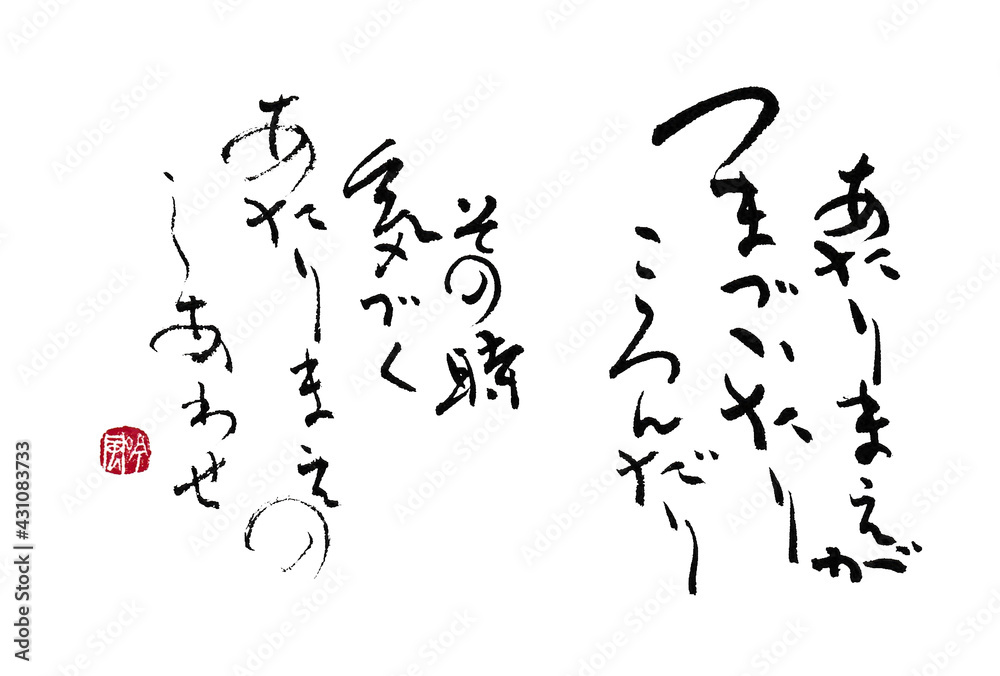 あたりまえが
つまづいたり
ころんだり
その時
気づく
あたりまえの
しあわせ
吟風
Adobe Stock | #431083733